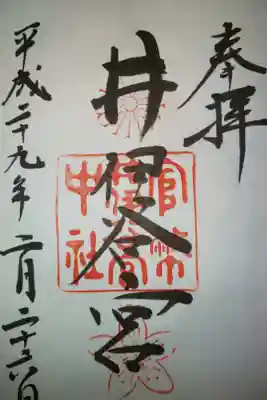 奉拝
井伊谷宮
官幣中社
井伊谷宮
平成二十九年二月二十六日